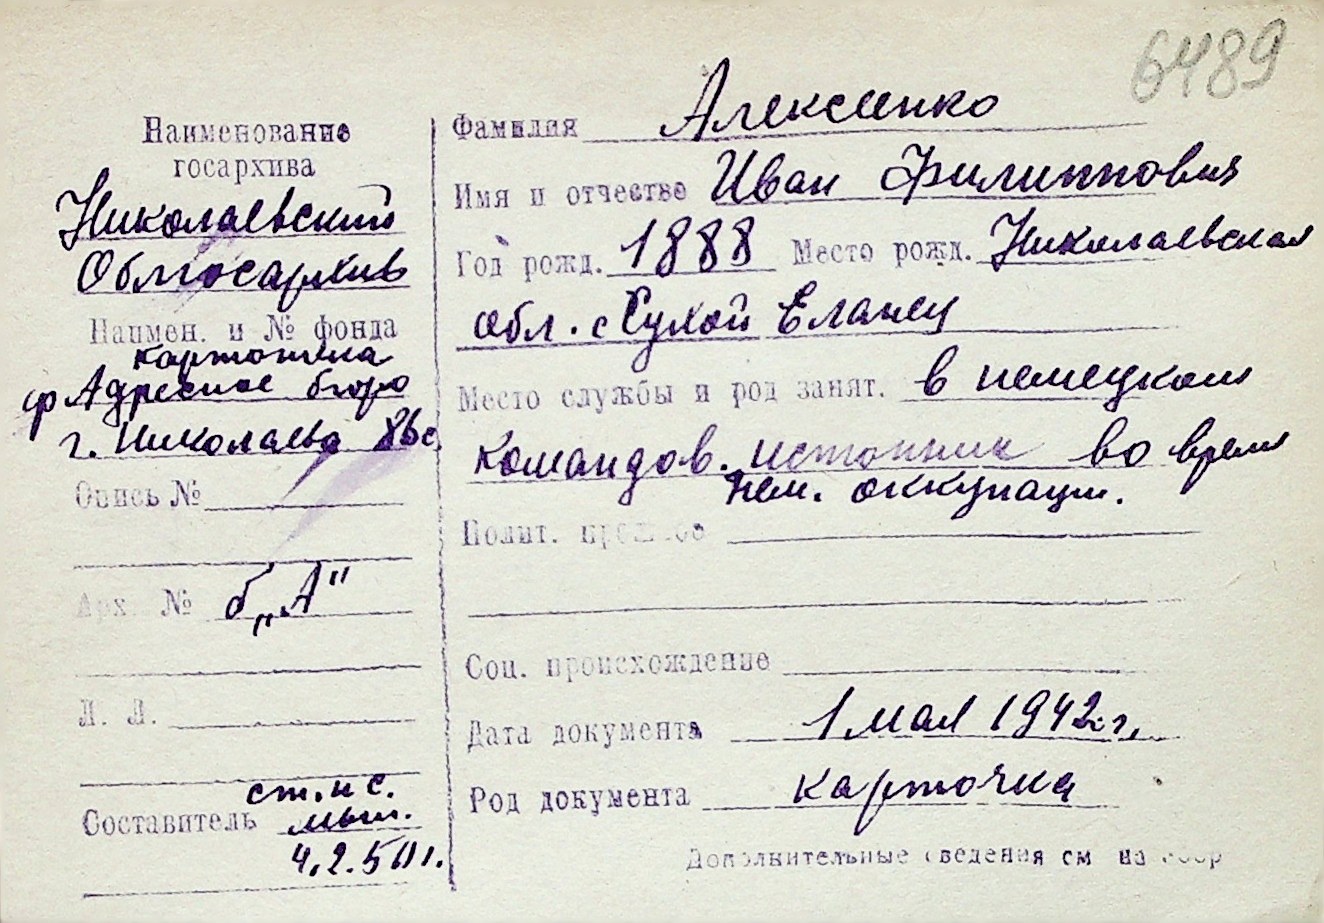 6489
Наименование
госархива
Николаевский
Облгосархив
Наимен. и № фонда
картотека
ф Адресное бюро
г. Николаева
Опись №
Арх. № б „А"
Л. Л.
Составитель
ст. н с.
4.2.50 г.
Фамилия Алексиенко
Имя и отчество Иван Филиппович
Год рожд. 1888 Место рожд. Николаевская
обл. с Сухой Еланец
Место службы и род занят. в немецком
командов. истопник во время
нем. оккупации.
Полит. прошлое
Соц. происхождение
Дата документа 1 мая 1942 г.
Род документа карточка
Дополнительные сведения см на обор